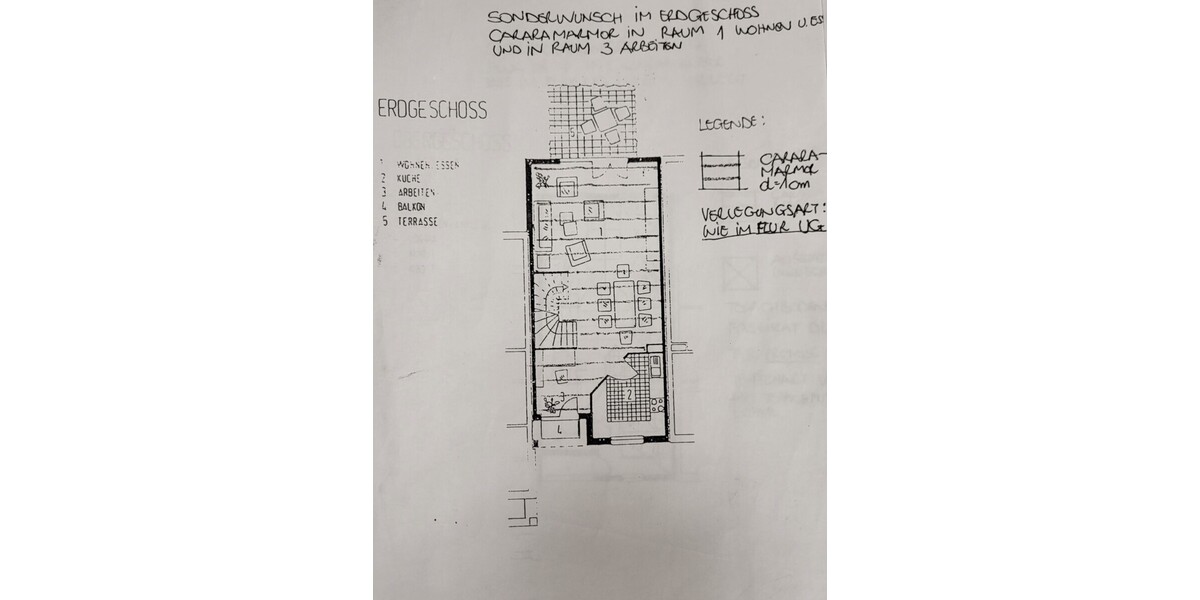 SONDERWUNSCH IM ERDGESCHOSS
CARARAMARMOR IN RAUM 1 WOHNEN U. ES
UND IN RAUM 3 ARBEITEN
ERDGESCHOSS
1 WOHNEN ESSEN
2 KÜCHE
3 ARBEITEN
4 BALKON
5 TERRASSE
LEGENDE:
CARARA-
MARMOR
d=1cm
VERLEGUNGSART:
WIE IM FLUR UG
5
1
2
4